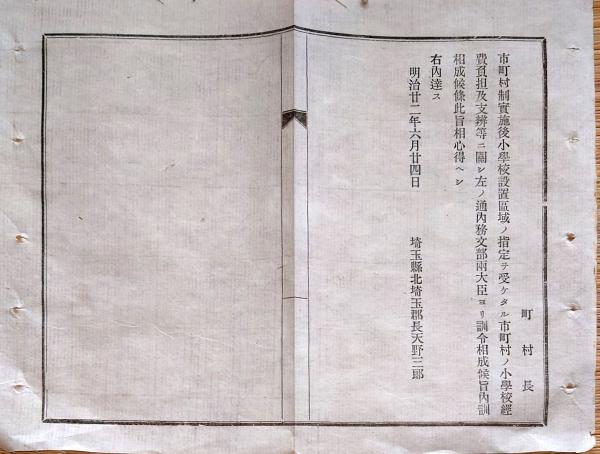 町村長
市町村制實施後小學校設置區域ノ指定ヲ受ケタル市町村ノ小學校經
費負担及支辨等ニ關シ左ノ通內務文部兩大臣ヨリ訓令相成候旨內訓
相成候條此旨相心得ヘシ
右內達ス
明治廿二年六月廿四日
埼玉縣北埼玉郡長天野三郞